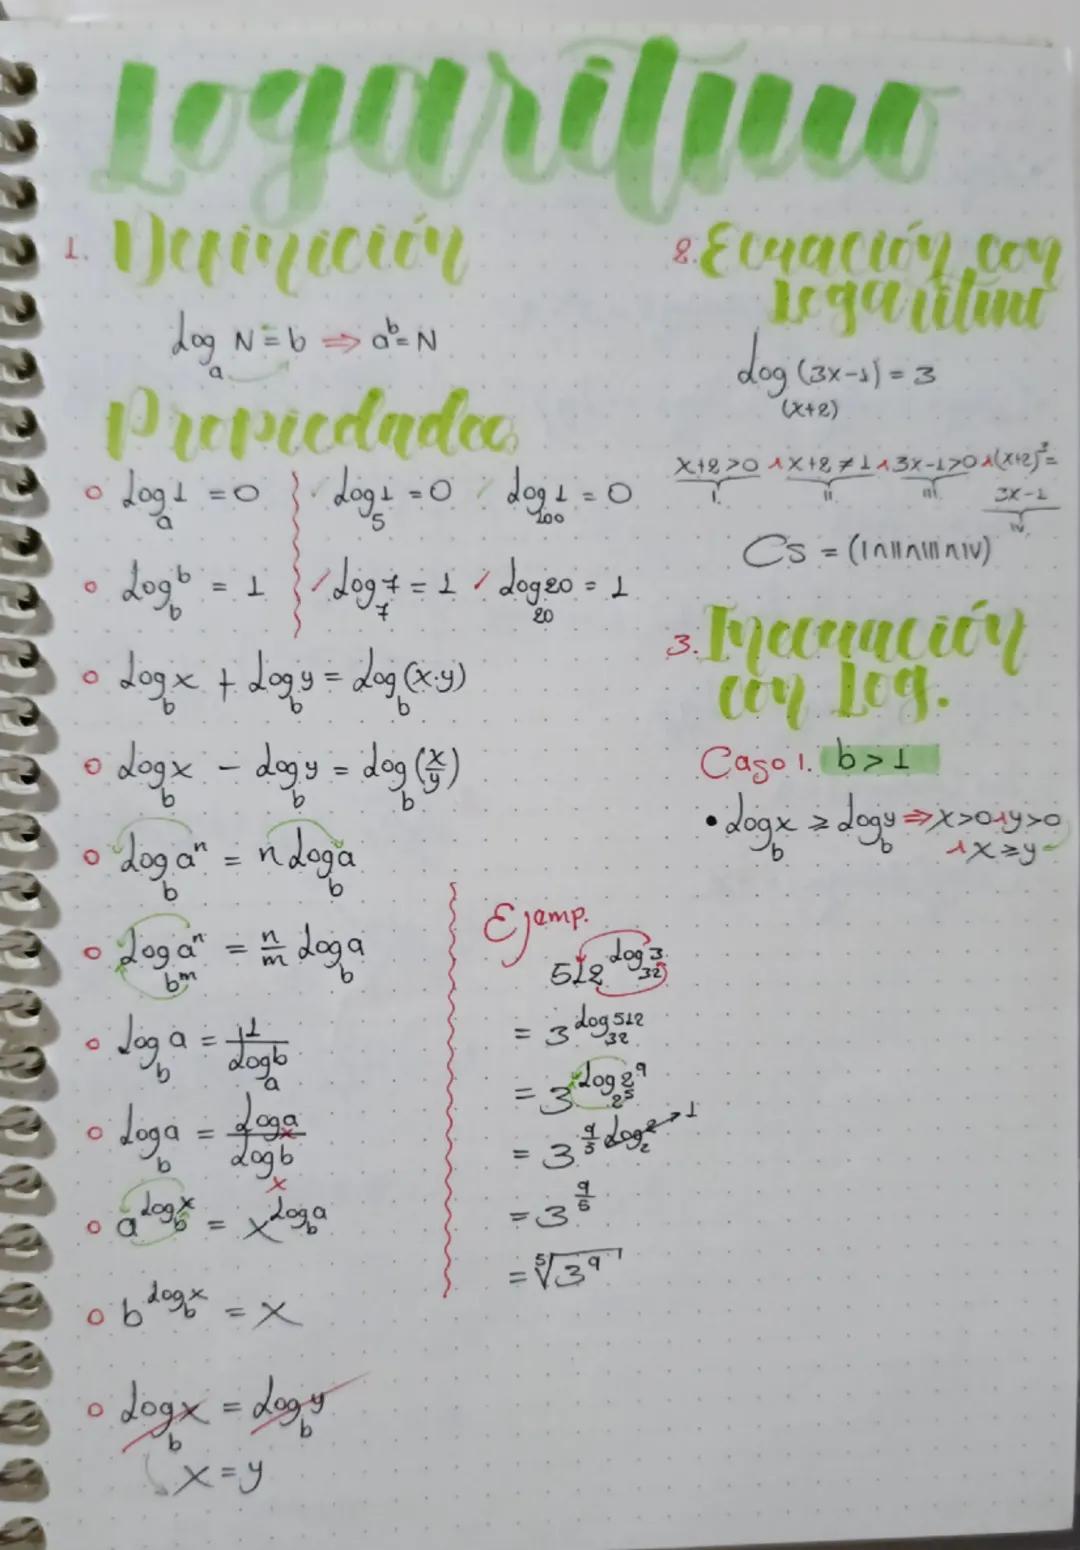 Logaritmo
1. Definición
Log_a N = b ⇒ a^b = N
Propiedades
Log_a 1 = 0 Log_5 1 = 0 Log_100 1 = 0
Log_b b = 1 Log_7 7 = 1 Log_20 20 = 1
Log_b x + Log_b y = Log_b (x·y)
Log_b x - Log_b y = Log_b (x/y)
Log_b a^n = n Log_b a
Log_b^m a^n = n/m Log_b a
Log_b a = 1/Log_a b
Log_b a = Log_x a/Log_x b
a^Log_b x = x^Log_b a
b^Log_b x = x
Log_b x = Log_b y
x = y
Ejemp.
512^Log_32 3
= 3^Log_32 512
= 3^Log_2^5 2^9
= 3^9/5 Log_2 2 → 1
= 3^9/5
= ⁵√3^9
2. Ecuación con
Logaritmo
Log_(x+2) (3x-1) = 3
x+2>0 ∧ x+2≠1 ∧ 3x-1>0 ∧ (x+2)^3=
3x-1
I. II. III. IV.
CS = (I∩II∩III∩IV)
3. Inecuación
con Log.
Caso 1. b>1
• Log_b x ≥ Log_b y ⇒ x>0 ∧ y>0
∧ x≥y